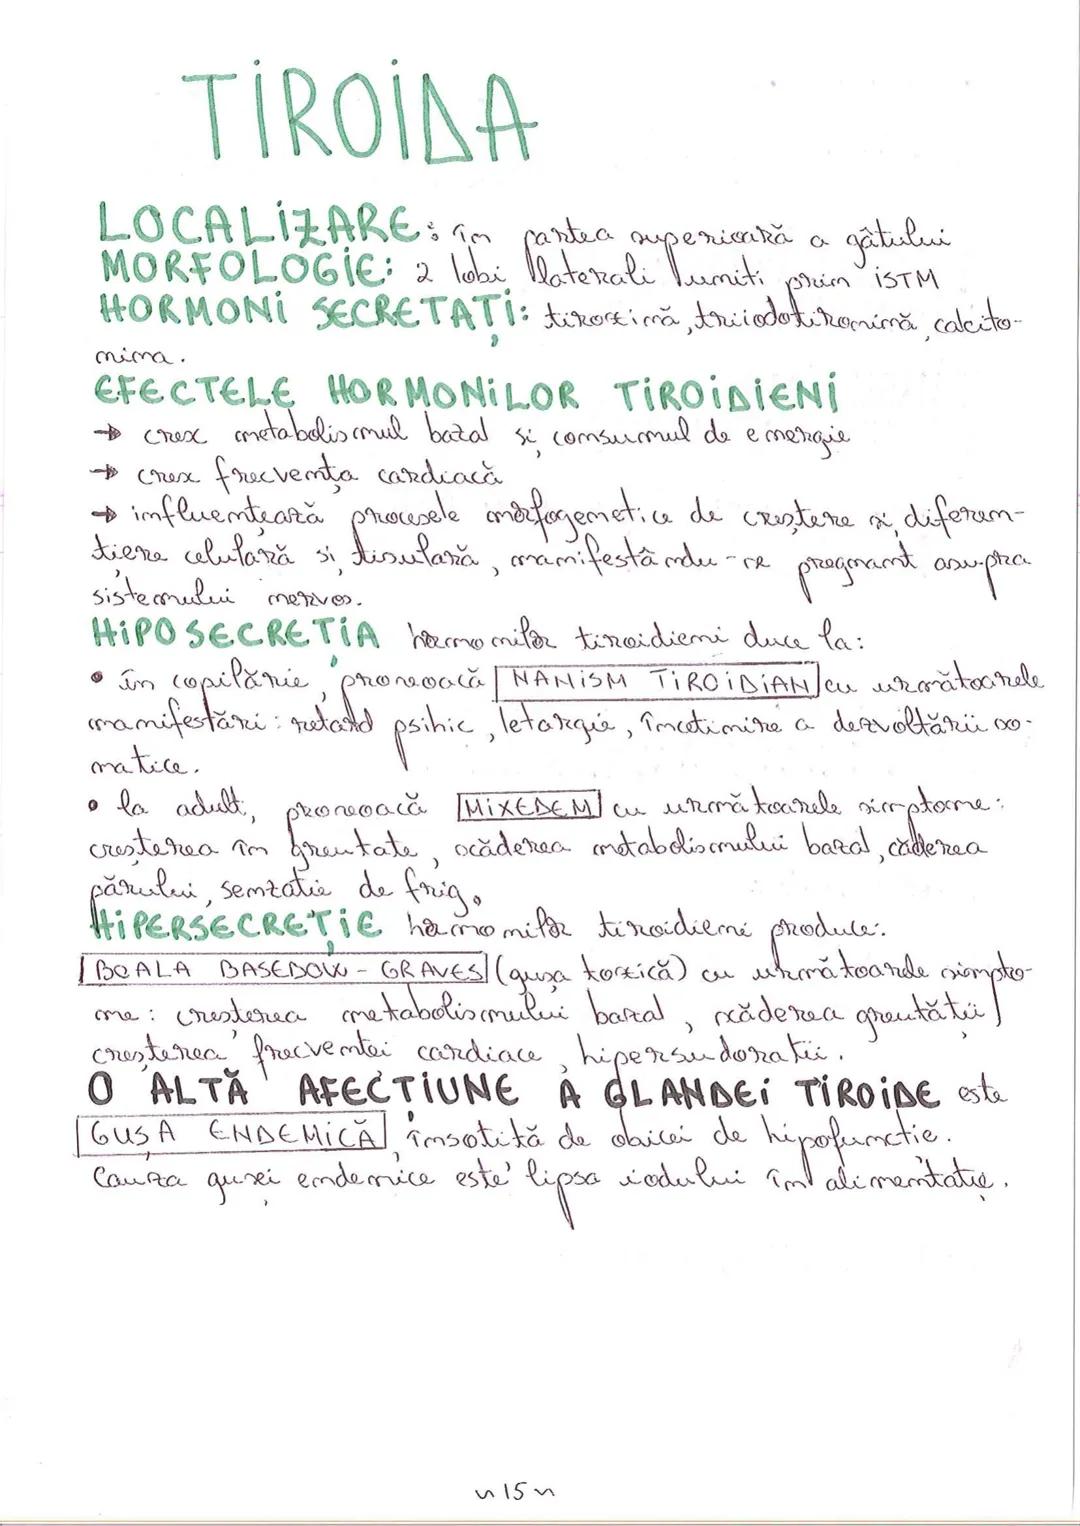 TIROIDA
LOCALIZARE: în partea superioară a gâtului
MORFOLOGIE: 2 lobi laterali uniți prin ISTM
HORMONI SECRETAȚI: tiroxină, triiodotironină, calcito-
nina.
EFECTELE HORMONILOR TIROIDIENI
→ cresc metabolismul bazal și consumul de energie
→ cresc frecvența cardiacă
→ influențează procesele morfogenetice de creștere și diferen-
țiere celulară și tisulară, manifestându-se pregnant asupra
sistemului nervos.
HIPOSECREȚIA hormonilor tiroidieni duce la:
• în copilărie, provoacă NANISM TIROIDIAN cu următoarele
manifestări: retard psihic, letargie, încetinire a dezvoltării so-
matice.
• la adult, provoacă MIXEDEM cu următoarele simptome:
creșterea în greutate, scăderea metabolismului bazal, căderea
părului, senzatie de frig.
HIPERSECREȚIE hormonilor tiroidieni produce:
BOALA BASEDOW - GRAVES (gușa toxică) cu următoarele simpto-
me: creșterea metabolismului bazal, scăderea greutății,
creșterea frecvenței cardiace, hipersudorații.
O ALTĂ AFECȚIUNE A GLANDEI TIROIDE este
GUȘA ENDEMICĂ, însoțită de obicei de hipofuncție.
Cauza gușei endemice este lipsa iodului în alimentație.
~ 15 ~